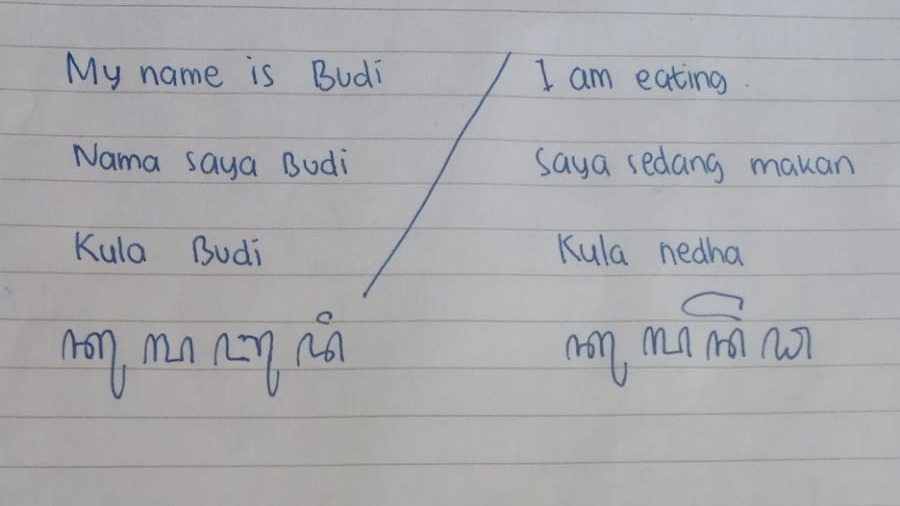 My name is Budi
Nama saya Budi
Kula Budi
ꦏꦸꦭꦧꦸꦢꦶ
I am eating.
Saya sedang makan
Kula nedha
ꦏꦸꦭꦤꦼꦝ